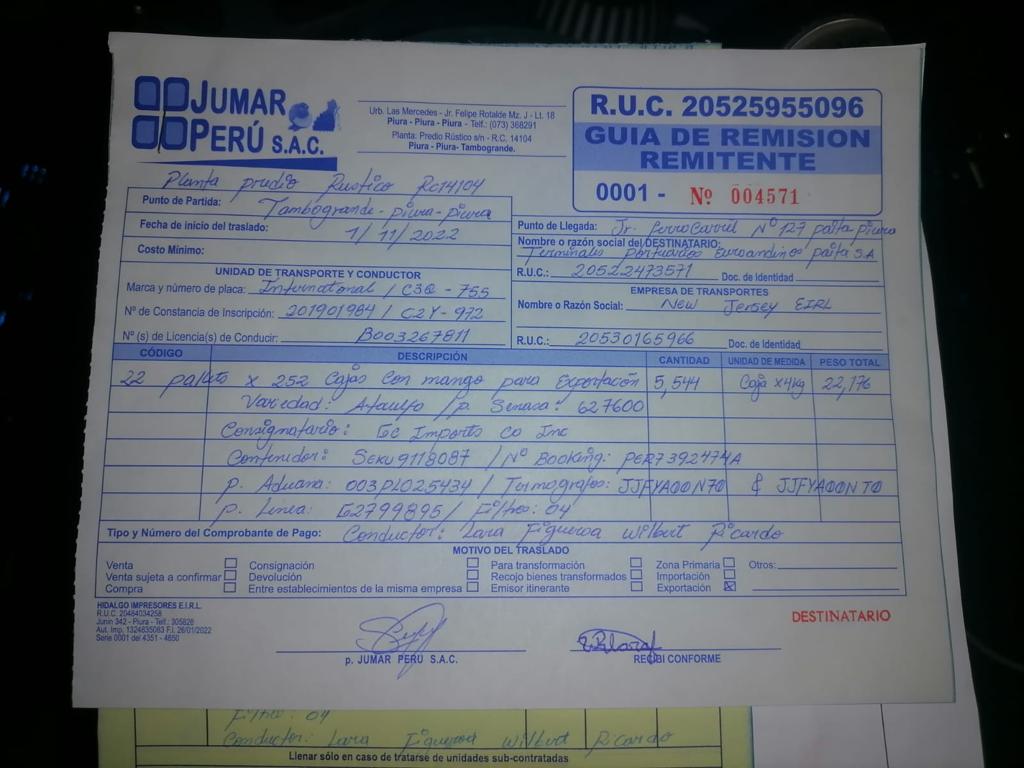 JUMAR PERÚ S.A.C.
Urb. Las Mercedes - Jr. Felipe Rotalde Mz. J - Lt. 18
Piura - Piura - Piura - Telf.: (073) 368291
Planta: Predio Rústico s/n - R.C. 14104
Piura - Piura- Tambogrande.
R.U.C. 20525955096
GUIA DE REMISION
REMITENTE
0001 - Nº 004571
Planta prudio Rustico Rc14104
Punto de Partida: Tambogrande - piura - piura
Fecha de inicio del traslado: 1/11/2022
Costo Mínimo:
Punto de Llegada: Jr. ferrocarril Nº 127 paita piura
Nombre o razón social del DESTINATARIO:
Terminales portuarios Euroandinos paita S.A
R.U.C.: 20522473571 Doc. de Identidad
UNIDAD DE TRANSPORTE Y CONDUCTOR
Marca y número de placa: International / C3Q - 755
Nº de Constancia de Inscripción: 201901984 / C2Y - 972
Nº (s) de Licencia(s) de Conducir: B003267811
EMPRESA DE TRANSPORTES
Nombre o Razón Social: New Jersey EIRL
R.U.C.: 20530165966 Doc. de Identidad
CÓDIGO DESCRIPCIÓN CANTIDAD UNIDAD DE MEDIDA PESO TOTAL
22 palets x 252 Cajas con mango para Exportación 5,544 Caja x4kg 22,176
Variedad: Ataulfo / p. Senasa: 627600
Consignatario: Gc Imports Co Inc
Contenedor: SEKU9118087 / Nº Booking: PER7392474A
p. Aduana: 003PL025434 / Termografos: JJFYA00N70 & JJFYA00NT0
p. Linea: G2799895 / Filtros: 04
Tipo y Número del Comprobante de Pago: Conductor: Lara Figueroa Wilbert Ricardo
MOTIVO DEL TRASLADO
Venta Consignación Para transformación Zona Primaria Otros:
Venta sujeta a confirmar Devolución Recojo bienes transformados Importación
Compra Entre establecimientos de la misma empresa Emisor itinerante Exportación X
HIDALGO IMPRESORES E.I.R.L.
R.U.C. 20484034258
Junin 342 - Piura - Telf.: 305826
Aut. Imp. 1324835083 F.I. 26/01/2022
Serie 0001 del 4351 - 4850
DESTINATARIO
p. JUMAR PERU S.A.C.
RECIBI CONFORME
Filtros: 04
Conductor: Lara Figueroa Wilbert Ricardo
Llenar sólo en caso de tratarse de unidades sub-contratadas